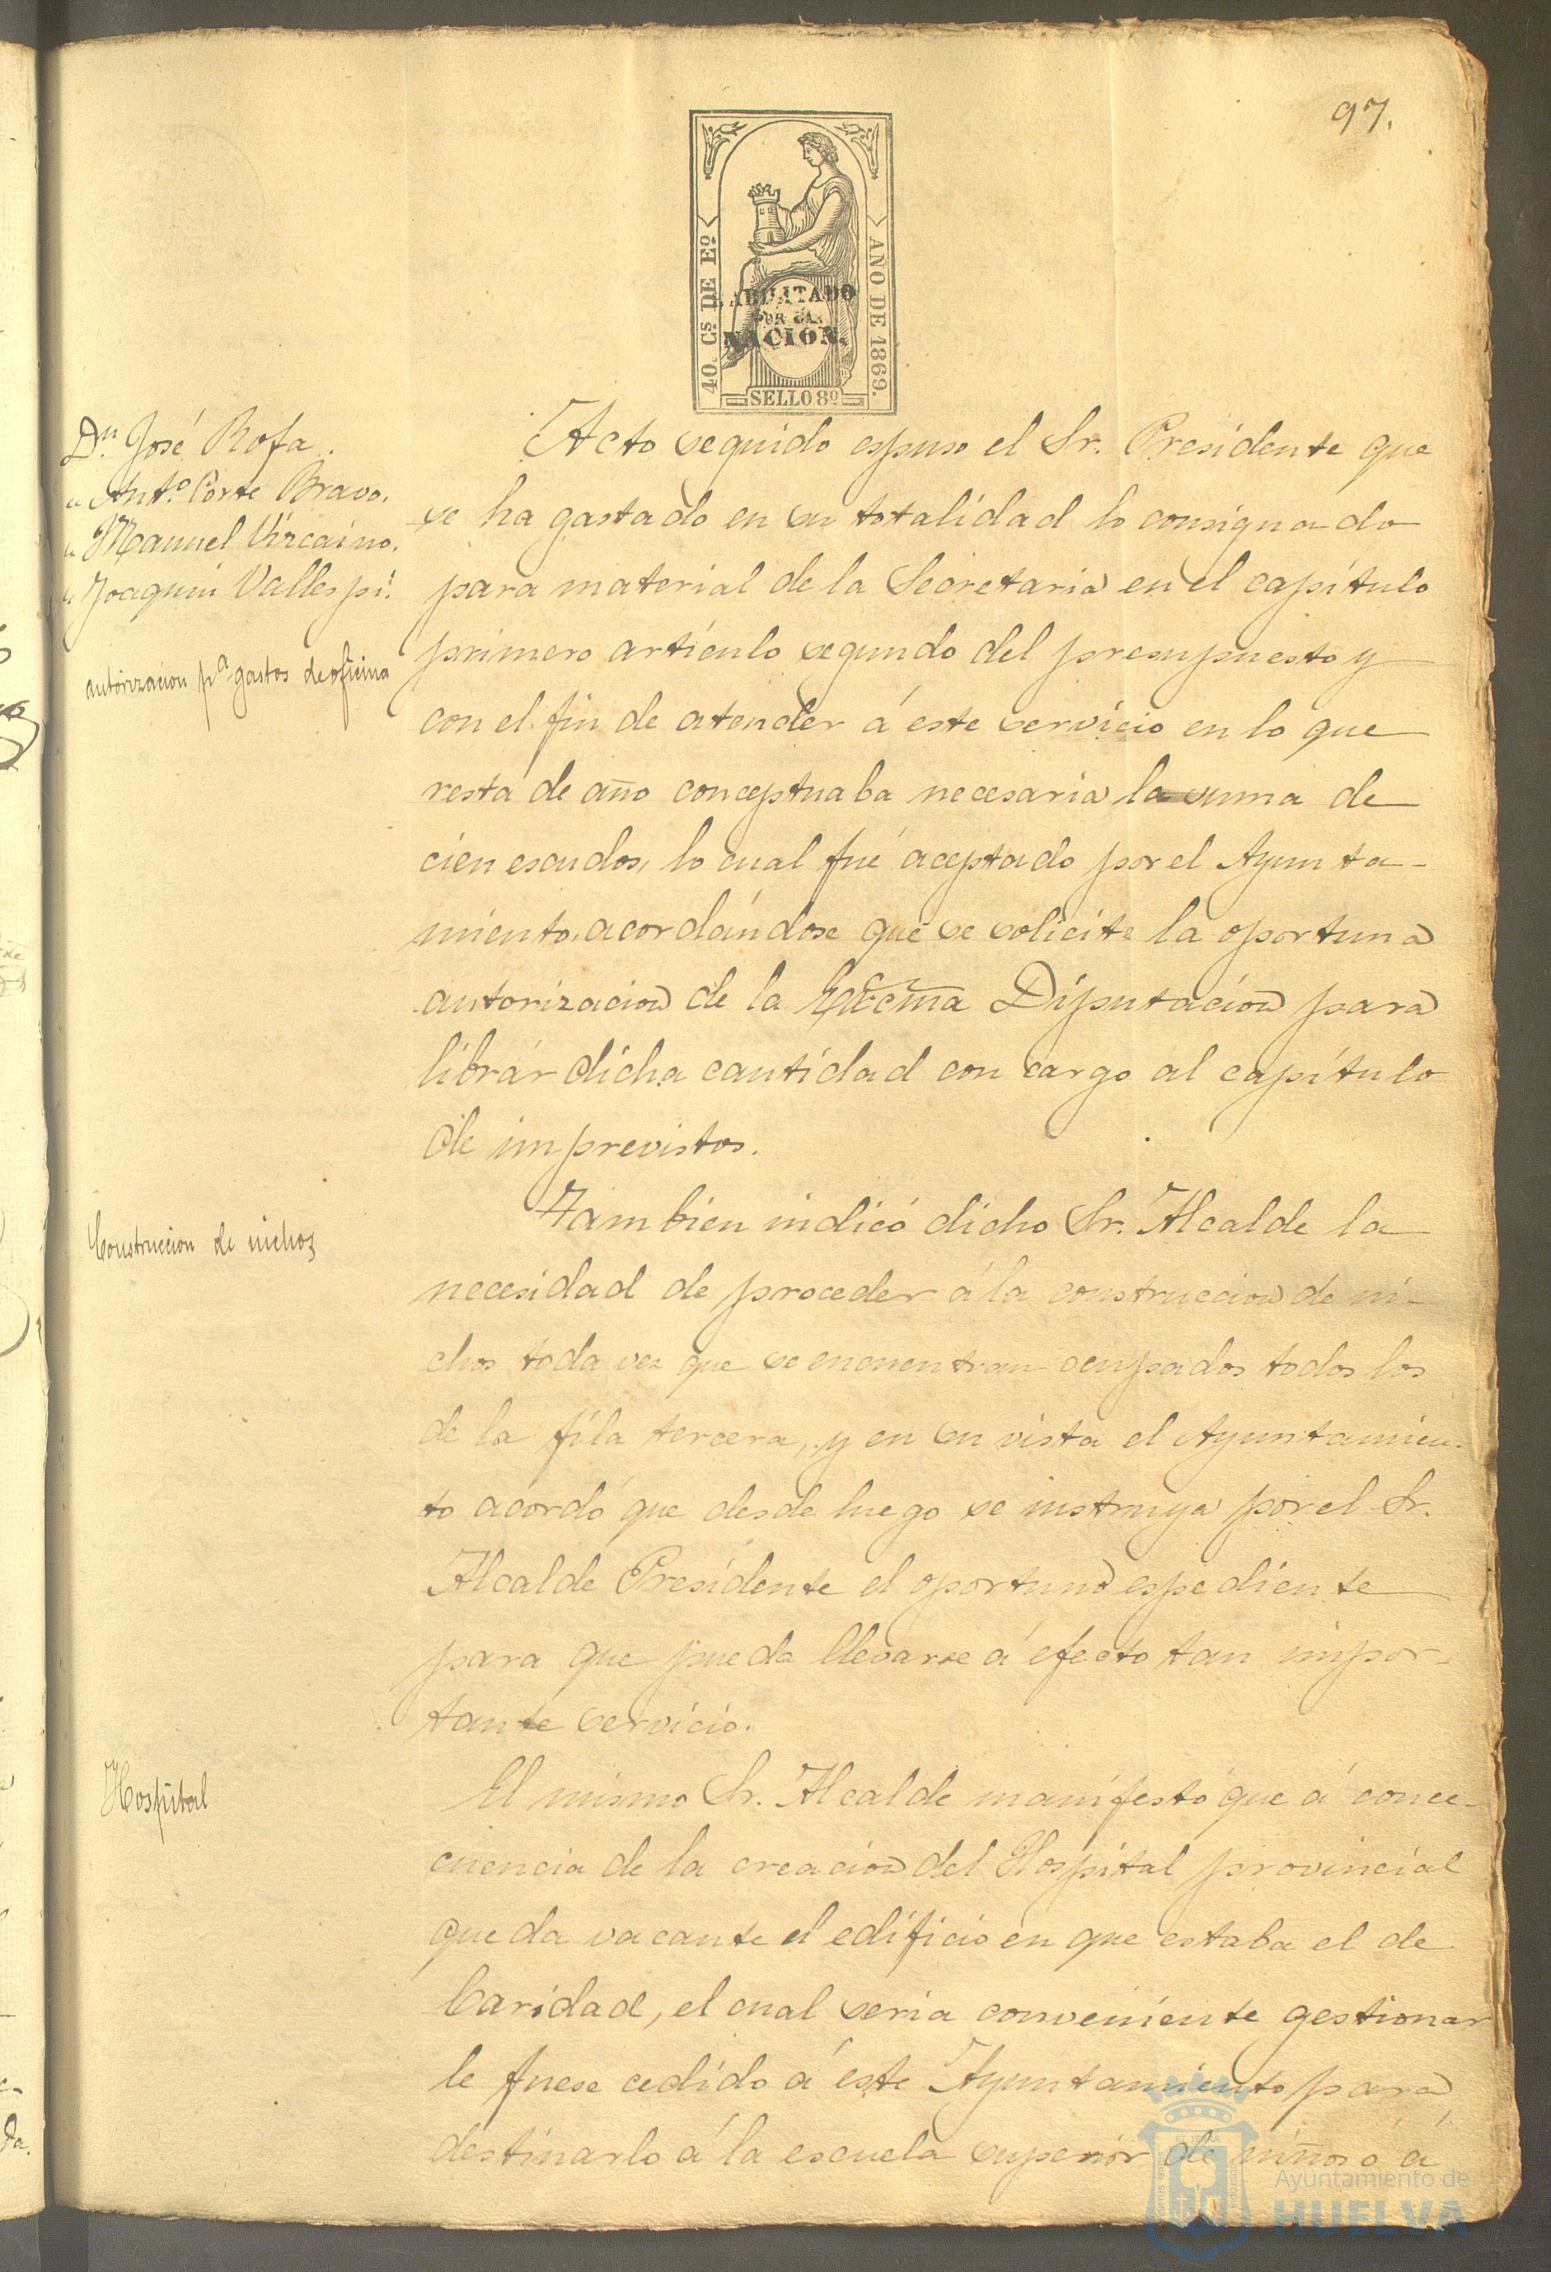 97.
40. Cs DE Eo
AÑO DE 1869.
HABILITADO
POR LA
NACION.
SELLO 8º
Dn. José Rofa.
" Anto. Corte Bravo.
" Manuel Vizcaino.
" Joaquin Vallespi.
autorizacion pa gastos de oficina
Acto seguido espuso el Sr. Presidente que
se ha gastado en su totalidad lo consignado
para material de la Secretaria en el capítulo
primero artículo segundo del presupuesto y
con el fin de atender á este servicio en lo que
resta de año conceptuaba necesaria la suma de
cien escudos, lo cual fué aceptado por el Ayunta-
miento, acordándose que se solicite la oportuna
autorizacion de la Excma Diputacion para
librár dicha cantidad con cargo al capítulo
de imprevistos.
Construccion de nichos
Tambien indicó dicho Sr. Alcalde la
necesidad de proceder á la construccion de ni-
chos toda vez que se encuentran ocupados todos los
de la fila tercera, y en su vista el Ayuntamien-
to acordó que desde luego se instruya por el Sr.
Alcalde Presidente el oportuno espediente
para que pueda llevarse á efecto tan impor-
tante servicio.
Hospital
El mismo Sr. Alcalde manifestó que á conce-
cuencia de la creacion del Hospital provincial
queda vacante el edificio en que estaba el de
Caridad, el cual seria conveniente gestionar
le fuese cedido á este Ayuntamiento para
destinarlo á la escuela superior de niños ó á
Ayuntamiento de
HUELVA